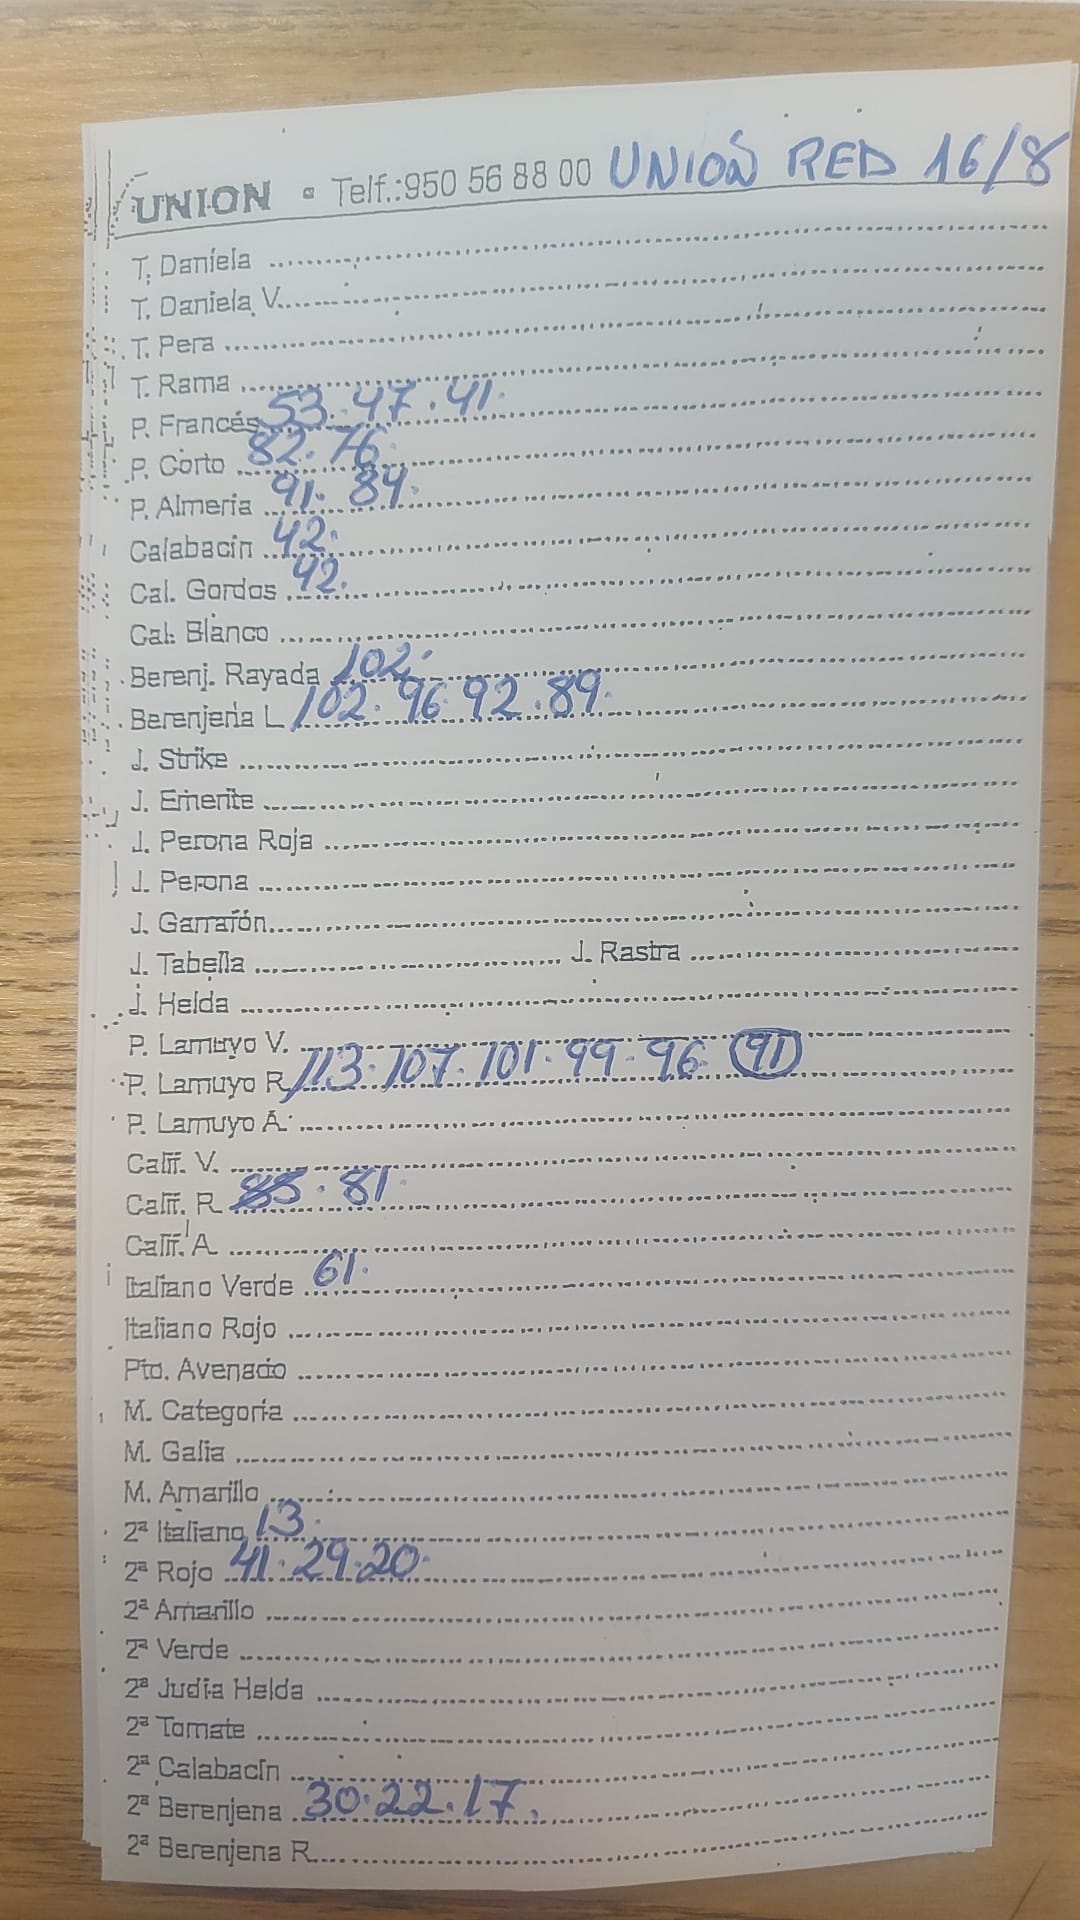 UNION - Telf.:950 56 88 00 UNION RED 16/8
T. Daniela
T. Daniela V.
T. Pera
T. Rama
P. Francés 53. 47. 41.
P. Corto 82. 76.
P. Almeria 91. 84.
Calabacín 42.
Cal. Gordos 42.
Cal. Blanco
Berenj. Rayada 102.
Berenjena L 102. 96. 92. 89.
J. Strike
J. Emerite
J. Perona Roja
J. Perona
J. Garrafón
J. Tabella J. Rastra
J. Helda
P. Lamuyo V.
P. Lamuyo R. 113. 107. 101. 99. 96. 91
P. Lamuyo A.
Calif. V.
Calif. R. 85. 81.
Calif. A
Italiano Verde 61.
Italiano Rojo
Pto. Avenado
M. Categoría
M. Galia
M. Amarillo
2ª Italiano 13.
2ª Rojo 41. 29. 20.
2ª Amarillo
2ª Verde
2ª Judía Helda
2ª Tomate
2ª Calabacín
2ª Berenjena 30. 22. 17.
2ª Berenjena R.